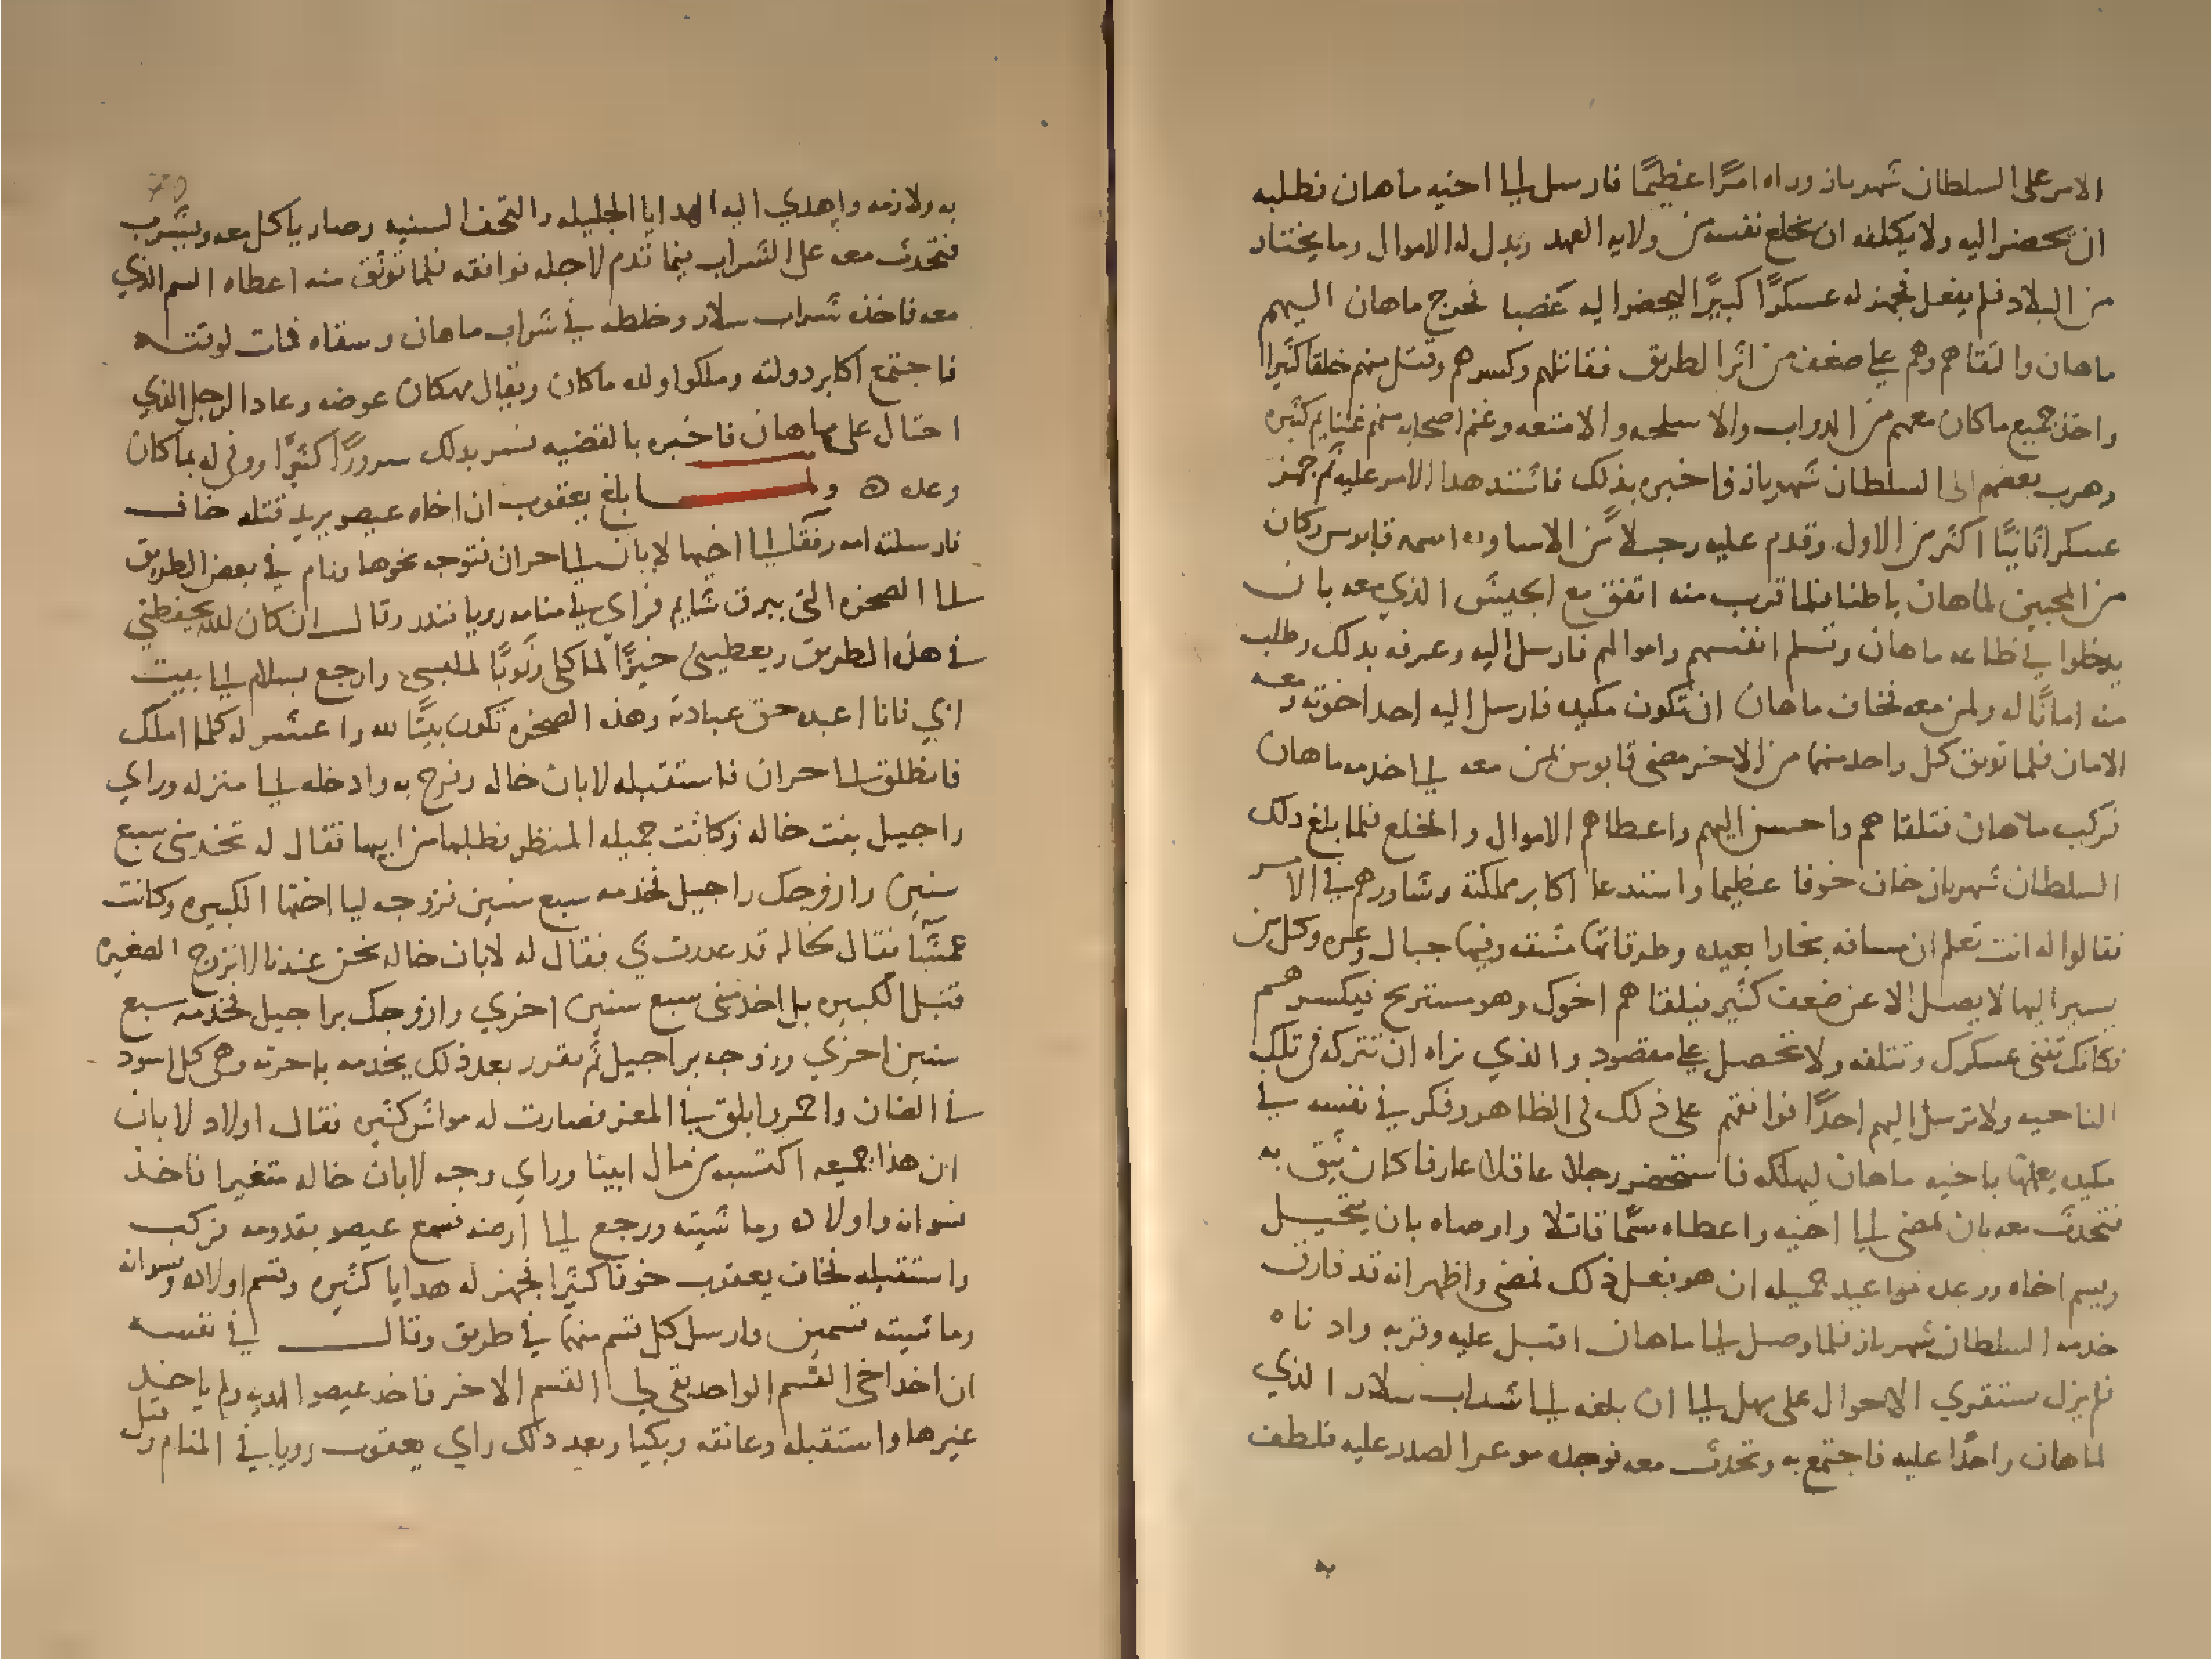 الامر على السلطان شهرباز وراه امرًا عظيمًا فارسل الى اخيه ماهان نطلبه
ان يحضر اليه ولا يكلفه ان يخلع نفسه من ولايه العهد وبدل له الاموال وما يختار
من البلاد فلم يفعل فجهز له عسكرًا كبيرًا ليحضر اليه غصبا فخرج ماهان اليهم
ماهان والتقاهم وهم على ضعف من اثر الطريق فقاتلهم وكسرهم وقتل منهم خلقا كثيرا
واخذ جميع ما كان معهم من الدواب والاسلحه والامتعه وغنم اصحابه منهم غنايم كثيره
وهرب بعضهم الى السلطان شهرباز فاخبره بذلك فاشتد هدا الامر عليه ثم جهز
عسكرا ثانيًا اكثر من الاول وقدم عليه رجلاً من الاساوره اسمه قابوس وكان
من المحبين لماهان باطنا فلما قرب منه اتفق مع الجيش الذي معه بان
يدخلوا في طاعه ماهان وتسلم انفسهم واموالهم فارسل اليه وعرفه بدلك وطلب
منه امانًا له ولمن معه فخاف ماهان ان تكون مكيده فارسل اليه احد اخوته ومعه
الامان فلما توثق كل واحد منهما من الاخر مضى قابوس بمن معه الى خدمه ماهان
فركب ماهان فتلقاهم واحسن اليهم واعطاهم الاموال والخلع فلما بلغ دلك
السلطان شهرباز خاف خوفا عظيما واستدعا اكابر مملكته وشاورهم في الامر
فقالوا له انت تعلم ان مسافه بخارا بعيده وطرقاتها مشقه وفيها جبال وعره وكل من
يسير اليها لا يصل الا عن ضعف كثير فيلقاهم اخوك وهو مستريح فيكسرهم
فكانك تفنى عسكرك وتتلفه ولا تحصل على مقصود والذي نراه ان تتركه في تلك
الناحيه ولا ترسل اليهم احدًا فوافقهم على ذلك في الظاهر وفكر في نفسه في
مكيده يعملها باخيه ماهان ليهلكه فاستحضر رجلا عاقلا عارفا كان يثق به
فتحدث معه بان يمضي الى اخيه واعطاه سمًا قاتلا واوصاه بان يتحيل
ويسم اخاه ووعده مواعيد جميله ان هو فعل ذلك فمضى واظهر انه قد فارق
خدمه السلطان شهرباز فلما وصل الى ماهان اقبل عليه وقربه وادناه
فلم يزل يستقري الاحوال على مهل الى ان بلغه الى شراب سلار الذي
لماهان واحدًا عليه فاجتمع به وتحدث معه فوجده موعر الصدر عليه فلطف
به
به ولازمه واهدي اليه الهدايا الجليله والتحف السنيه وصار ياكل معه ويشرب
فتحدث معه على الشراب فيما قدم لاجله فوافقه فلما توثق منه اعطاه السم الذي
معه فاخذه شراب سلار وخلطه في شراب ماهان وسقاه فمات لوقته
فاجتمع اكابر دولته وملكوا ولده ماكان ويقال مهكان عوضه وعاد الرجل الذي
احتال على ماهان فاخبره بالقضيه فسر بدلك سرورًا كثيرًا ووفى له بما كان
وعده ه ولما بلغ يعقوب ان اخاه عيصو يريد قتله خاف
فارسلته امه رفقا الى اخيها لابان الى حران فتوجه نحوها ونام في بعض الطريق
الى الصخره التى ببرت شايم فراي في منامه رويا فندر وقال ان كان الله يحفظني
في هذه الطريق ويعطيني خبزًا لماكلي وثوبًا لملبسي وارجع بسلام الى بيت
ابي فانا اعبده حق عبادته وهذه الصخره تكون بيتًا لله واعشر له كلما املك
فانطلق الى حران فاستقبله لابان خاله وفرح به وادخله الى منزله وراي
راحيل بنت خاله وكانت جميله المنظر فطلبها من ابيها فقال له تخدمني سبع
سنين وازوجك راحيل فخدمه سبع سنين فزوجه ليا اختها الكبيره وكانت
عمشًا فقال لخاله قد غدرت بي فقال له لابان خاله نحن عندنا لا نزوج الصغيره
قبل الكبيره بل اخدمني سبع سنين اخري وازوجك براحيل فخدمه سبع
سنين اخري وزوجه براحيل ثم تقرر بعد ذلك يخدمه باجرته وهي كل اسود
في الضان واحمر وابلق في المعز فصارت له مواشي كثيره فقال اولاد لابان
ان هذا جميعه اكتسبه من مال ابينا وراي وجه لابان خاله متغيرا فاخذ
نسوانه واولاده وماشيته ورجع الى ارضه فسمع عيصو بقدومه فركب
واستقبله فخاف يعقوب خوفا كثيرا فجهز له هدايا كثيره وقسم اولاده ونسوانه
وماشيته قسمين وارسل كل قسم منهما في طريق وقال في نفسه
ان اخد اخي القسم الواحد بقي لي القسم الاخر فاخد عيصو الهديه ولم ياخد
غيرها واستقبله وعانقه وبكيا وبعد ذلك راي يعقوب رويا في المنام وقيل